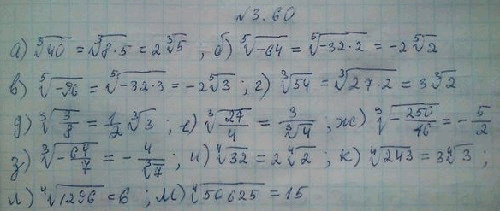 №3.60
а) ∛40 = ∛(8·5) = 2∛5 ; б) ⁵√(-64) = ⁵√(-32·2) = -2⁵√2
в) ⁵√(-96) = ⁵√(-32·3) = -2⁵√3 ; г) ∛54 = ∛(27·2) = 3∛2
д) ∛(3/8) = 1/2 ∛3 ; е) ∛(27/4) = 3/∛4 ; ж) ∛(-250/16) = -5/2
з) ∛(-64/7) = -4/∛7 ; и) ⁴√32 = 2⁴√2 ; к) ⁴√243 = 3⁴√3 ;
л) ⁴√1296 = 6 ; м) ⁴√50625 = 15